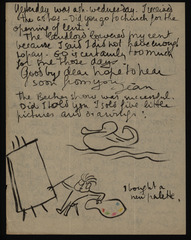 Yesterday was ash-wednesday. I received
the ashes - Did you go to church for the
opening of Lent.
The landlord lowered my rent
because I said I did not have enough
to pay - is certainly too much
for me those days!
Good by dear hope to hear
soon from you
Jean
The Becker show was successful.
Did I told you I sold five little
pictures and drawings!
I bought a
new palette.